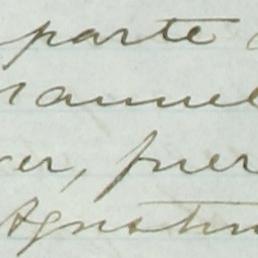 parte
anuel
er, fuer
Agustin